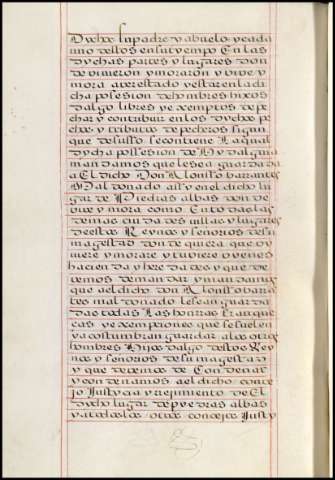 Dichos su padre y abuelo y cada
uno dellos en su tyempo En las
dychas partes y lugares don
de vivieron y moraron y vive y
mora aver estado y estar en la di
cha posesion de hombres hixos
dalgo libres y exemptos de pe
char y contribuir en los dychos pe
chos y tributos de pecheros segun
que de suso se contiene La qual
dycha possesion de Hydalguia
mandamos que le sea guardada
a El dicho Don Alonsso barrantes
Maldonado assy en el dicho lu
gar de Piedras albas don de
vive y mora como En todas las
demas ciudades villas y lugares
de estos Reynos y señorios de su
magestad donde quiera que vy
viere y morare y tuviere bienes
hacienda y heredades y que de
vemos de mandar y mandamos
que a el dicho don Alonsso barra
tes maldonado le sean guarda
das todas Las honrras franque
cas y exempciones que se suelen
y acostumbran guardar a los otros
hombres Hijos dalgo destos Rey
nos y señorios de su magestad
y que devemos de Condenar
y condenamos a el dicho conce
jo Justycia y rejimiento de El
dycho lugar de pyedras albas
y a todos los otros concejos Justy